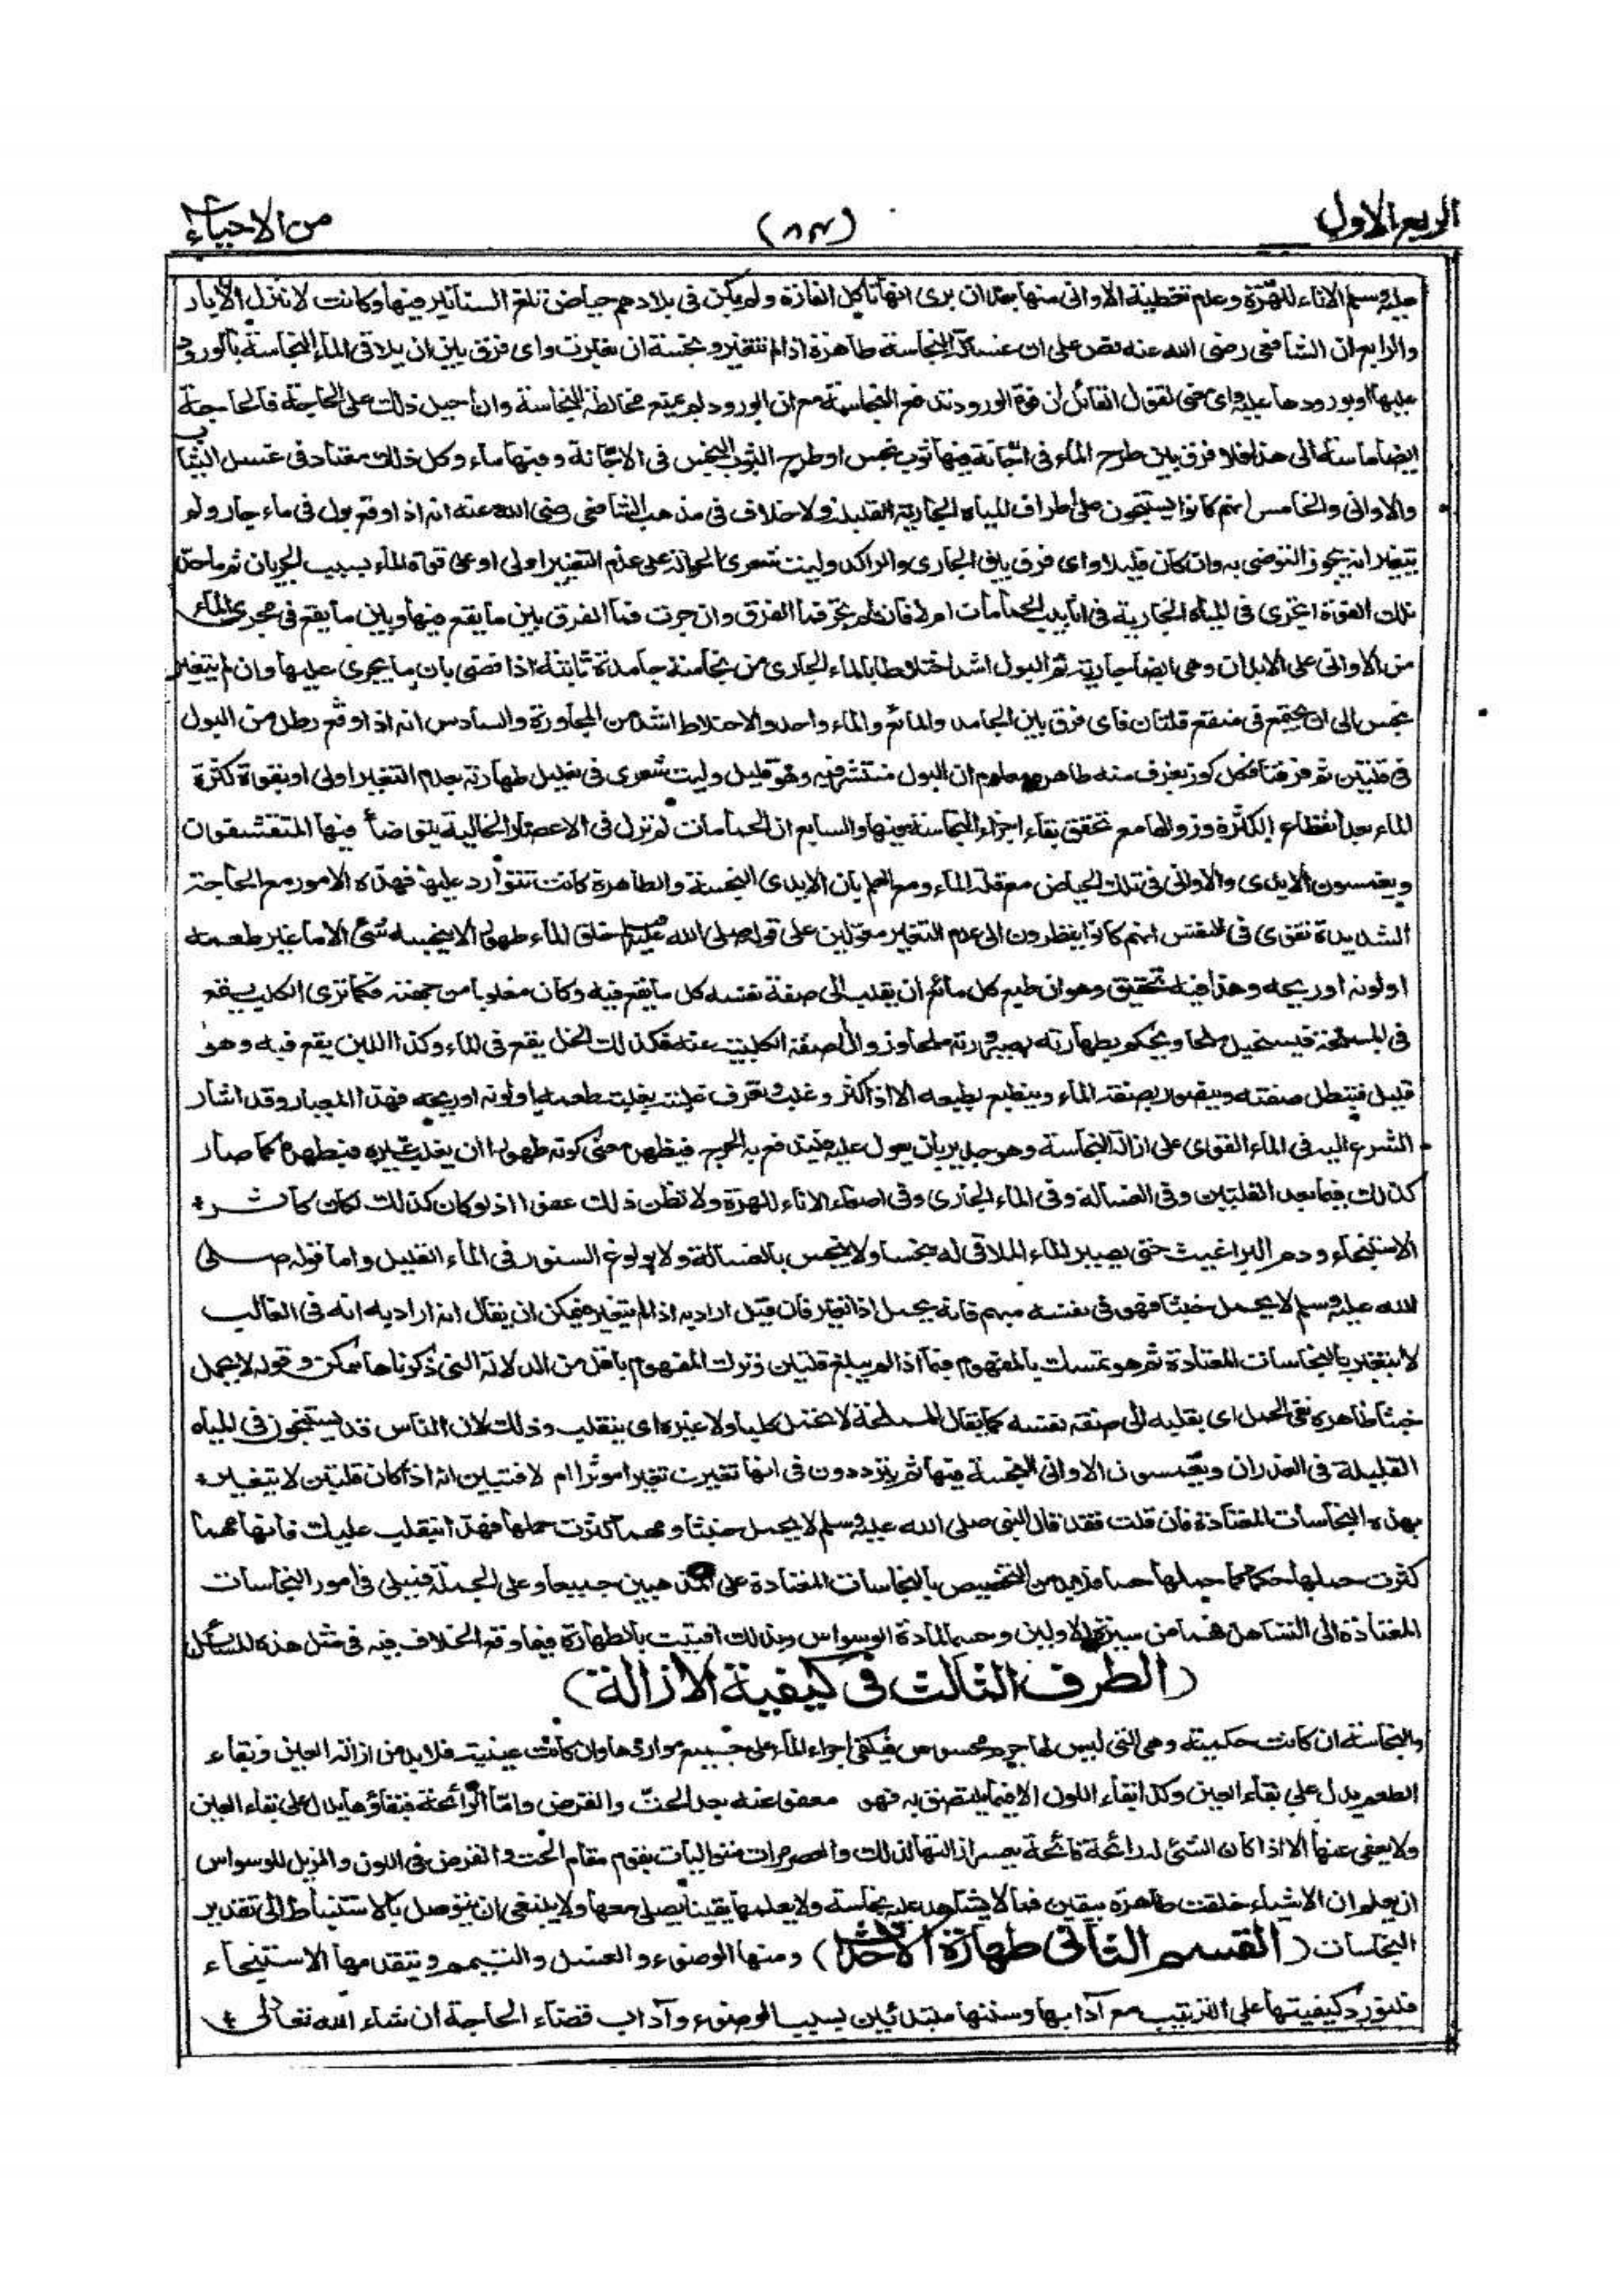 الربع الاول
(٨٣)
من الاحياء
عليه وسلم الاناء للهرّة وعدم تغطية الاوانى منها بعد ان يرى انها تاكل الفارة ولم يكن فى بلادهم حياض تلغ السنانير فيها وكانت لا تنزل الآبار
والرابع ان الشافعى رضى الله عنه نص على ان غسالة النجاسة طاهرة اذا لم تتغير ونجسة ان تغيرت واى فرق بين ان يلاقى الماء النجاسة بالورود
عليها او بورودها عليه واى معنى لقول القائل ان قوة الورود تدفع النجاسة مع ان الورود لم يمنع مخالطة النجاسة وان احيل ذلك على الحاجة فالحاجة
ايضا ماسة الى هذا فلا فرق بين طرح الماء فى اجّانة فيها ثوب نجس او طرح الثوب النجس فى الاجّانة وفيها ماء وكل ذلك معتاد فى غسل الثياب
والاوانى والخامس انهم كانوا يستنجون على اطراف المياه الجارية القليلة ولا خلاف فى مذهب الشافعى رضى الله عنه انه اذا وقع بول فى ماء جار ولم
يتغير انه يجوز التوضى به وان كان قليلا واى فرق بين الجارى والراكد وليت شعرى الحوالة على عدم التغير اولى او على قوة الماء بسبب الجريان ثم ما حدّ
تلك القوة اتجرى فى المياه الجارية فى انابيب الحمامات ام لا فان لم تجر فما الفرق وان جرت فما الفرق بين ما يقع فيها وبين ما يقع فى مجرى الماء
من الاوانى على الابدان وهى ايضا جارية ثم البول اشد اختلاطا بالماء الجارى من نجاسة جامدة ثابتة اذا قضى بان ما يجرى عليها وان لم يتغير
نجس الى ان يجتمع فى منقع قلتان فاى فرق بين الجامد والمائع والماء واحد والاختلاط اشد من المجاورة والسادس انه اذا وقع رطل من البول
فى قلتين ثم فرقتا فكل كوز يغرف منه طاهر ومعلوم ان البول منتشر فيه وهو قليل وليت شعرى فى تعليل طهارته بعدم التغير اولى او بقوة كثرة
الماء بعد انقطاع الكثرة وزوالها مع تحقق بقاء اجزاء النجاسة فيها والسابع ان الحمامات لم تزل فى الاعصار الخالية يتوضأ فيها المتقشفون
ويغمسون الايدى والاوانى فى تلك الحياض مع قلة الماء ومع العلم بان الايدى النجسة والطاهرة كانت تتوارد عليها فهذه الامور مع الحاجة
الشديدة تقوى فى النفس انهم كانوا ينظرون الى عدم التغير معوّلين على قوله صلى الله عليه وسلم خلق الماء طهورا لا ينجسه شئ الا ما غير طعمه
او لونه او ريحه وهذا فيه تحقيق وهو ان طبع كل مائع ان يقلب الى صفة نفسه كل ما يقع فيه وكان مغلوبا من جهته فكما ترى الكلب يقع
فى المملحة فيستحيل ملحا ويحكم بطهارته بصيرورته ملحا وزوال صفة الكلبية عنه فكذلك الخل يقع فى الماء وكذا اللبن يقع فيه وهو
قليل فتبطل صفته ويتصور بصفة الماء وينطبع بطبعه الا اذا كثر وغلب وتعرف غلبته بغلبة طعمه او لونه او ريحه فهذا المعيار وقد اشار
الشرع اليه فى الماء القوى على ازالة النجاسة وهو جدير بان يعول عليه فيندفع به الحرج فيظهر معنى كونه طهورا اذ يغلب غيره فيطهره كما صار
كذلك فيما بعد القلتين وفى الغسالة وفى الماء الجارى وفى اصغاء الاناء للهرة ولا تظن ذلك عفوا اذ لو كان كذلك لكان كاثر
الاستنجاء ودم البراغيث حتى يصير الماء الملاقى له نجسا ولا ينجس بالغسالة ولا بولوغ السنور فى الماء القليل واما قوله صلى
الله عليه وسلم لا يحمل خبثا فهو فى نفسه مبهم فانه يحمل اذا تغير فان قيل اراد به اذا لم يتغير فيمكن ان يقال انه اراد به انه فى الغالب
لا يتغير بالنجاسات المعتادة ثم هو تمسك بالمفهوم فيما اذا لم يبلغ قلتين وترك المفهوم باقل من الادلة التى ذكرناها ممكن وقوله لا يحمل
خبثا ظاهره نفى الحمل اى يقلبه الى صفة نفسه كما يقال للمملحة لا تحمل كلبا ولا غيره اى ينقلب وذلك لان الناس قد يستنجون فى المياه
القليلة فى الغدران ويغمسون الاوانى النجسة فيها ثم يترددون فى انها تغيرت تغيرا موثرا ام لا فتبين انه اذا كان قلتين لا يتغير
بهذه النجاسات المعتادة فان قلت فقد قال النبى صلى الله عليه وسلم لا يحمل خبثا ومهما كثرت حملها فهذا ينقلب عليك فانها مهما
كثرت حملها حكما كما حملها حسا فلا بد من التخصيص بالنجاسات المعتادة على المذهبين جميعا وعلى الجملة فميلى فى امور النجاسات
المعتادة الى التساهل فهما من سيرة الاولين وحسما لمادة الوسواس وبذلك افتيت بالطهارة فيما وقع الخلاف فيه فى مثل هذه المسائل
(الطرف الثالث فى كيفية الازالة)
والنجاسة ان كانت حكمية وهى التى ليس لها جرم محسوس فيكفى اجراء الماء على جميع مواردها وان كانت عينية فلا بد من ازالة العين وبقاء
الطعم يدل على بقاء العين وكذا بقاء اللون الا فيما يلتصق به فهو معفو عنه بعد الحتّ والقرص وامّا الرائحة فبقاؤها يدل على بقاء العين
ولا يعفى عنها الا اذا كان الشئ له رائحة فائحة يعسر ازالتها فالدلك والعصر مرات متواليات يقوم مقام الحت والقرص فى اللون والمزيل للوسواس
ان يعلم ان الاشياء خلقت طاهرة بيقين فما لا يشاهد عليه نجاسة ولا يعلمها يقينا يصلى معها ولا ينبغى ان يتوصل بالاستنباط الى تقدير
النجاسات (القسم الثانى طهارة الاحداث) ومنها الوضوء والغسل والتيمم ويتقدمها الاستنجاء
فلنورد كيفيتها على الترتيب مع آدابها وسننها مبتدئين بسبب الوضوء وآداب قضاء الحاجة ان شاء الله تعالى